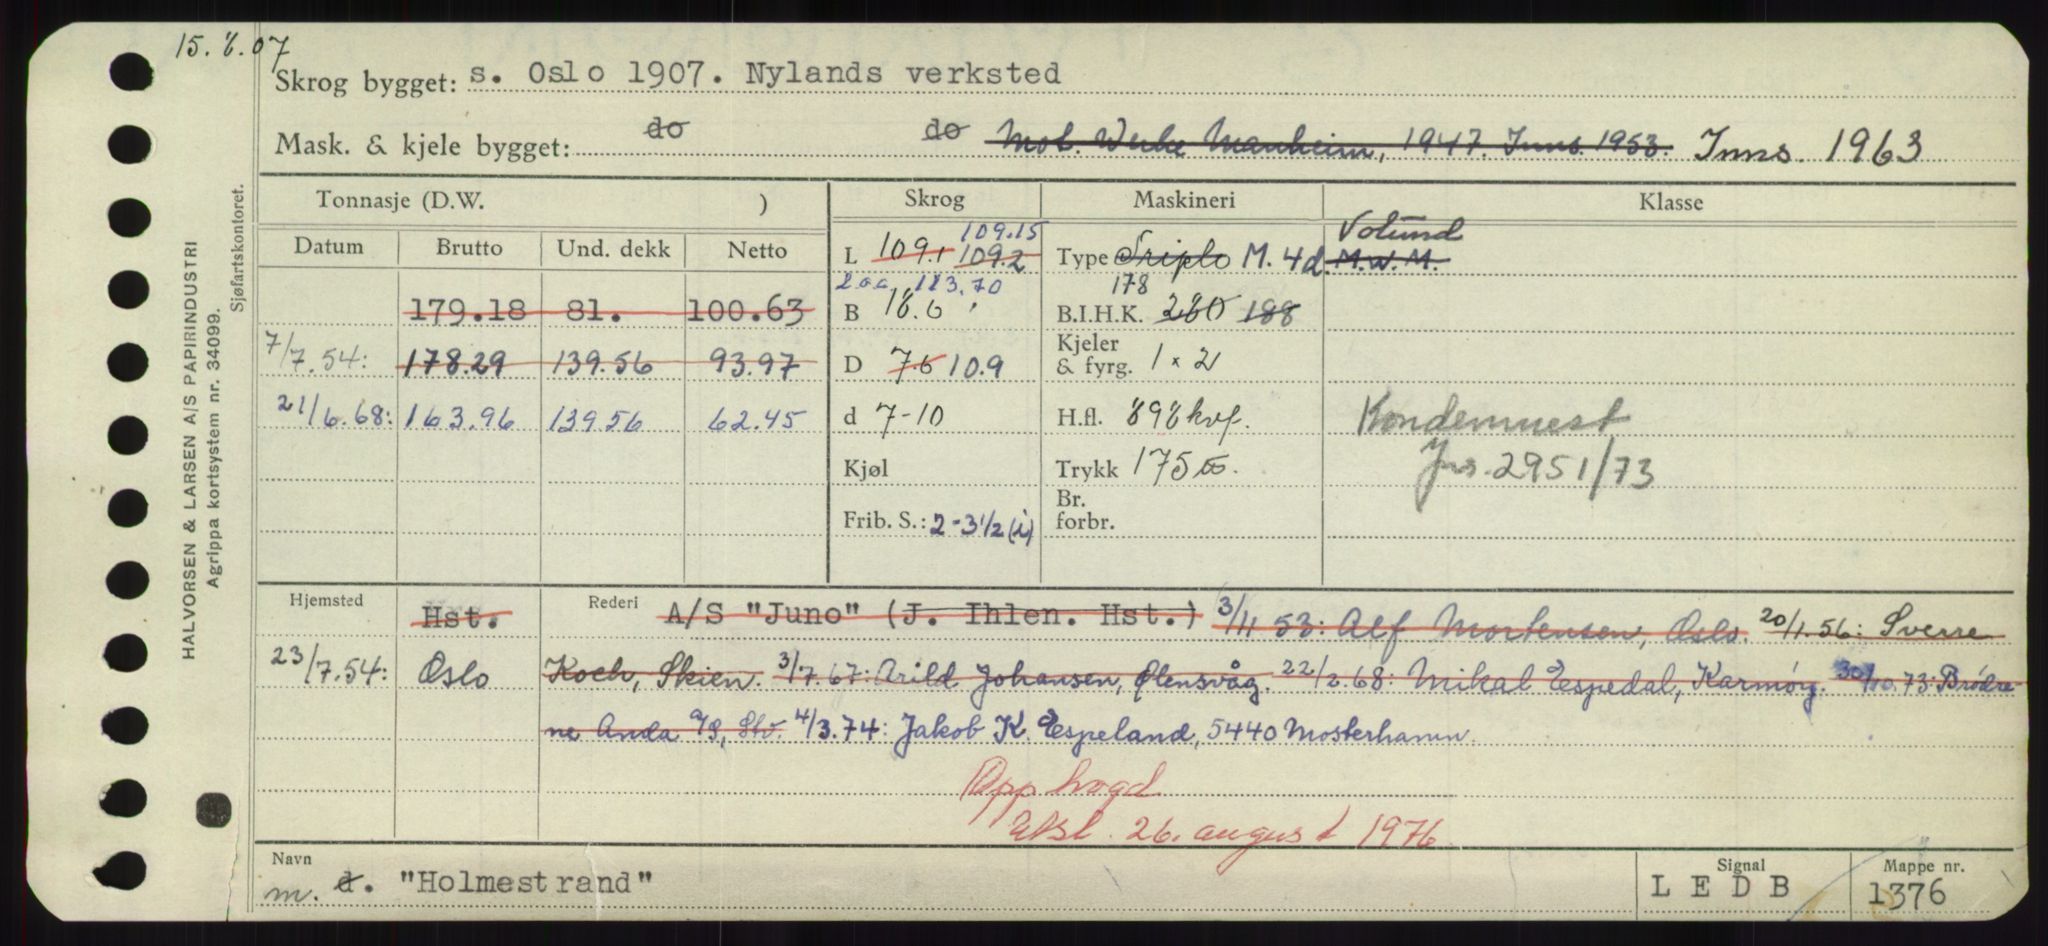 15.8.07
Skrog bygget: s. Oslo 1907. Nylands verksted
Mask. & kjele bygget: do do Mot. Werke Manheim, 1947. Inns. 1953. Inns. 1963
Tonnasje (D.W. )
Skrog
Maskineri
Klasse
Datum Brutto Und. dekk Netto
179.18 81. 100.63
7/7.54: 178.29 139.56 93.97
21/6.68: 163.96 139.56 62.45
109.15
L 109,1 109.2
L.o.a. 113.70
B 18.6
D 7.6 10.9
d 7-10
Kjøl
Frib. S.: 2-3 1/2 (i)
Vølund
Type Triplo M. 4d. M.W.M.
178
B.I.H.K. 280 188
Kjeler & fyrg. 1 x 2
H.fl. 898 kvf.
Trykk 175 lbs.
Br. forbr.
Kondemnert
Jnr. 2951/73
Hjemsted Hst.
Rederi A/S "Juno" (J. Ihlen. Hst.) 3/11 53: Alf Mortensen, Oslo. 20/1.56: Sverre
23/7.54: Oslo Koch, Skien. 3/7.67: Arild Johansen, Ølensvåg. 22/2.68: Mikal Espedal, Karmøy. 30/10.73: Brødre-
ne Anda A/S, Stv. 4/3.74: Jakob K. Espeland, 5440 Mosterhamn.
Opphogd
26. august 1976
Navn m. d. "Holmestrand"
Signal LEDB
Mappe nr. 1376
HALVORSEN & LARSEN A/S PAPIRINDUSTRI
Agrippa kortsystem nr. 34099.
Sjøfartskontoret.